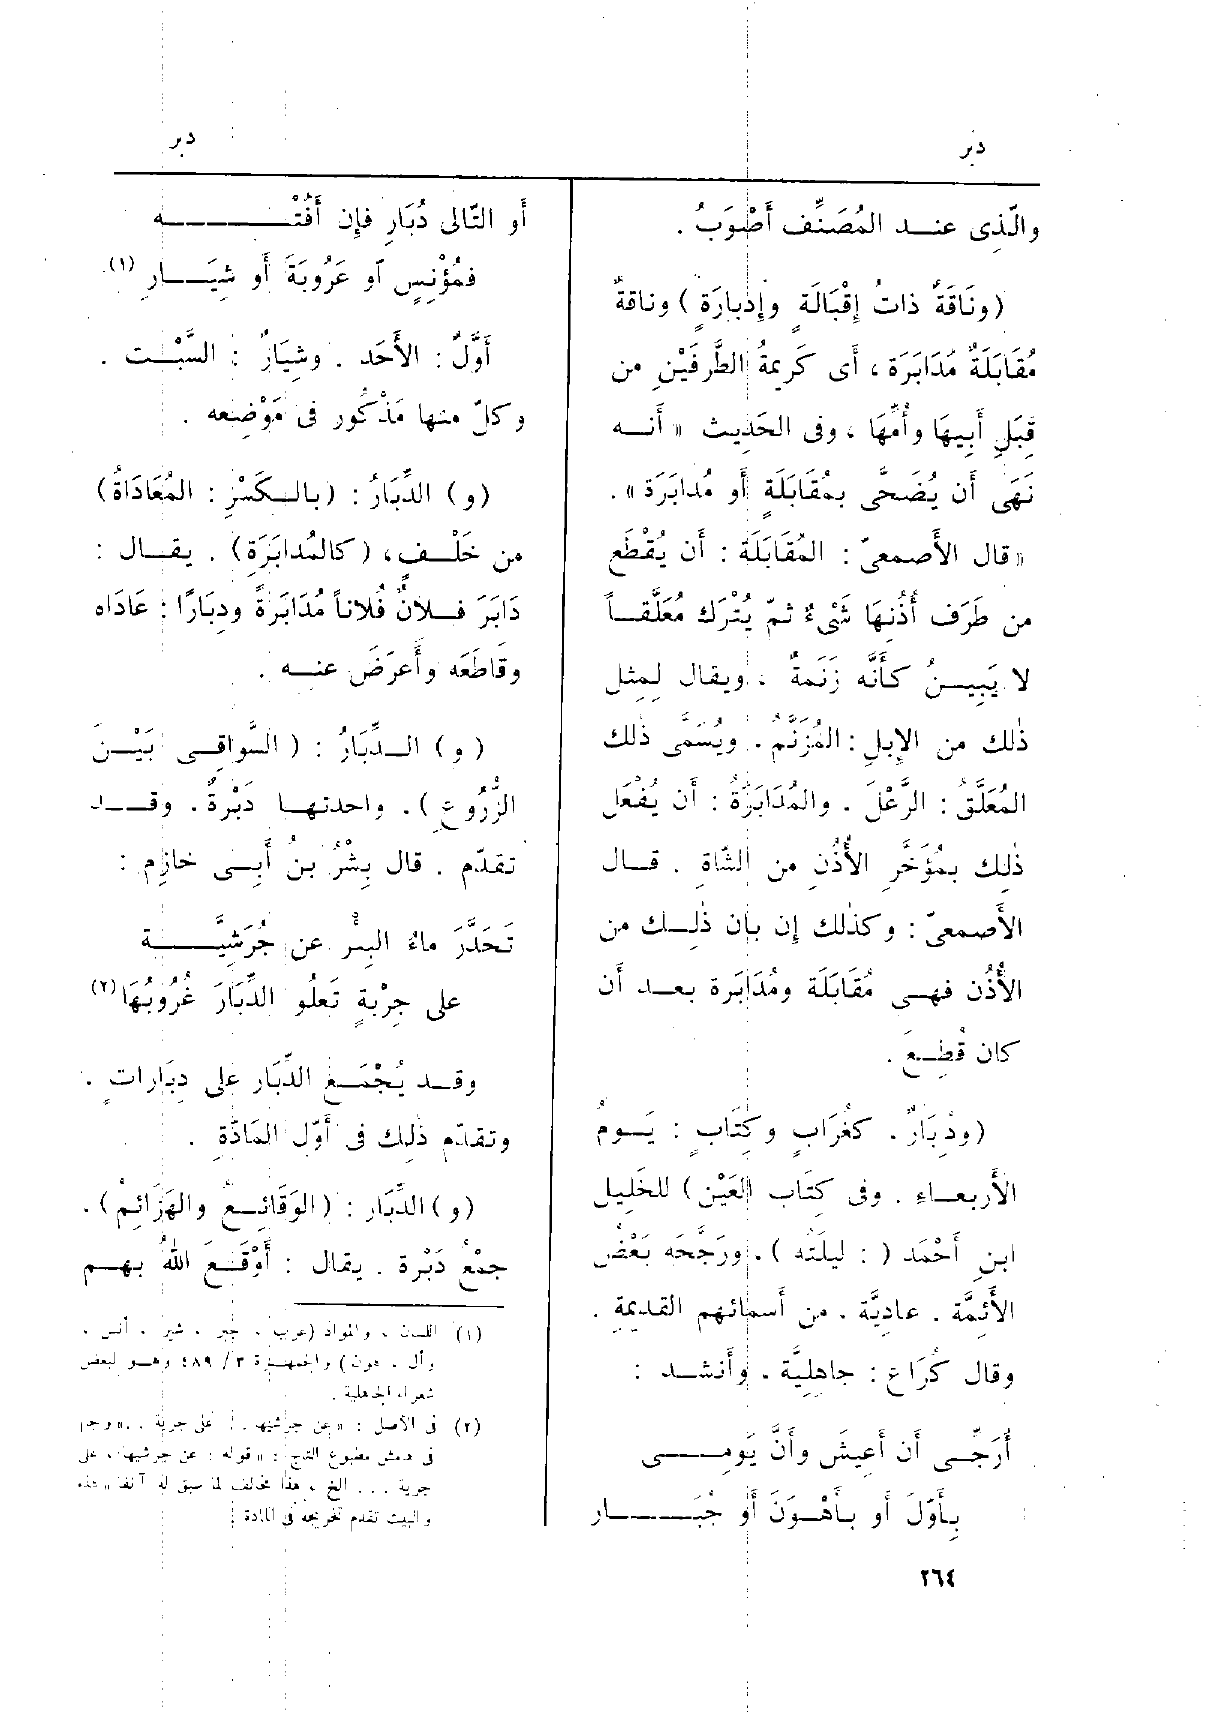 دبر
دبر
والّذِى عنــد المُصَنِّف أَصْوَبُ .
(ونَاقَةٌ ذاتُ إِقْبَالَةٍ وإِدْبارَةٍ) وناقةٌ
مُقَابَلَةٌ مُدَابَرَة ، أَى كَرِيمةُ الطَّرفَيْنِ من
قِبَلِ أَبِيهَا وأُمِّهَا ، وفى الحَدِيث «أَنــه
نَهَى أَن يُضَحَّى بمُقَابَلَةٍ أَو مُدابَرَة» .
«قال الأَصمعىّ : المُقَابَلَة : أَن يُقْطَع
من طَرَف أُذُنِهَا شَىْءٌ ثمّ يُتْرَك مُعَلَّقــاً
لا يَبِيــنُ كأَنَّه زَنَمةٌ ، ويقال لِمِثل
ذٰلك من الإِبلِ : المُزَنَّمُ . ويُسَمَّى ذٰلك
المُعَلَّقُ : الرَّعْلَ . والمُدَابَرَةُ : أَن يُفْعَل
ذٰلِك بمُؤَخَّرِ الأُذُنِ من الشّاةِ . قــال
الأَصمعىّ : وكذٰلك إِن بان ذٰلِــك من
الأُذُن فهــى مُقَابَلَة ومُدَابَرة بعــد أَن
كان قُطِــعَ .
(ودُبَارٌ . كغُرَابٍ وكِتَابٍ : يَــومُ
الأَربعــاءِ . وفى كِتَاب العَيْن) للخَلِيل
ابنِ أَحْمَد ( : ليلَتُه ) . ورَجَّحَه بَعْضُ
الأَئِمَّة . عادِيَّة . من أَسمائهم القديمةِ .
وقال كُرَاع : جاهليَّة . وأَنشــد :
أُرَجِّــى أَن أَعِيشَ وأَنَّ يَومِــى
بأَوّلَ أَو بأَهْــوَنَ أَو جُبَــار
أَو التّالى دُبَارِ فإِن أَفُتْــه
فمُؤْنِسٍ أَو عَرُوبَةَ أَو شِيَــارِ (١).
أَوَّلُ : الأَحَد . وشِيَارٌ : السَّبْــت .
وكلّ منها مَذْكُور فى مَوْضِعه .
(و) الدِّبَارُ : (بالــكَسْرِ : المُعَادَاةُ)
من خَلْــفٍ ، (كالمُدابَرَةِ) . يقــال :
دَابَرَ فــلانٌ فُلاناً مُدَابَرَةً ودِبَارًا : عَادَاه
وقَاطَعَه وأَعرَضَ عنــه .
(و) الــدِّبَارُ : (السَّواقِــى بَيْــنَ
الزُّرُوعِ) . واحدتهــا دَبْرةٌ . وقــد
تقدّم . قال بِشْرُ بنُ أَبِــى خازِم :
تَحَدَّرَ ماءُ البِئْر عن جُرَشِيَّــة
على جِرْبةٍ تَعلُو الدِّبَارَ غُرُوبُهَا (٢)
وقــد يُجْمَــع الدِّبَار على دِبَارات .
وتقدّم ذٰلِك فى أَوّل المَادّةِ .
(و) الدِّبَار : (الوَقَائِــعُ والهَزَائِمُ) .
جمْعُ دَبْرة . يقال : أَوْقَــعَ اللهُ بهــم
(١) اللسان ، والمواد (عرب ، جبر ، شير ، أنس ،
وأل ، هون) والجمهرة ٣ / ٤٨٩ وهــو لبعض
شعراء الجاهلية .
(٢) فى الأصل : «عن جرشيها . . على جربة . .» وجم
فى هامش مطبوع التاج : «قوله : عن جرشيها ، على
جربة . . . الخ ، هذا مخالف لما سبق له آنفا» هذه
والبيت تقدم تخريجه فى المادة
٢٦٤